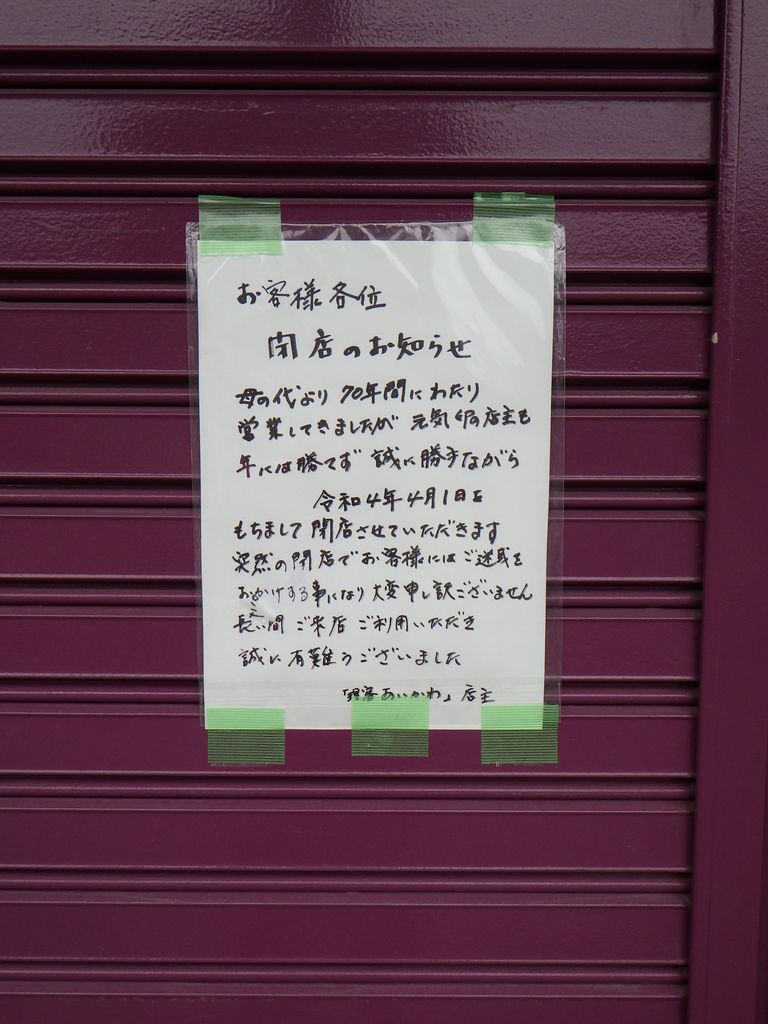 お客様各位
閉店のお知らせ
母の代より 70年間にわたり
営業してきましたが 元気印の店主も
年には勝てず 誠に勝手ながら
令和4年4月1日を
もちまして 閉店させていただきます
突然の閉店でお客様にはご迷惑を
おかけする事になり 大変申し訳ございません
長い間 ご来店 ご利用いただき
誠に有難うございました
あいかわ」 店主